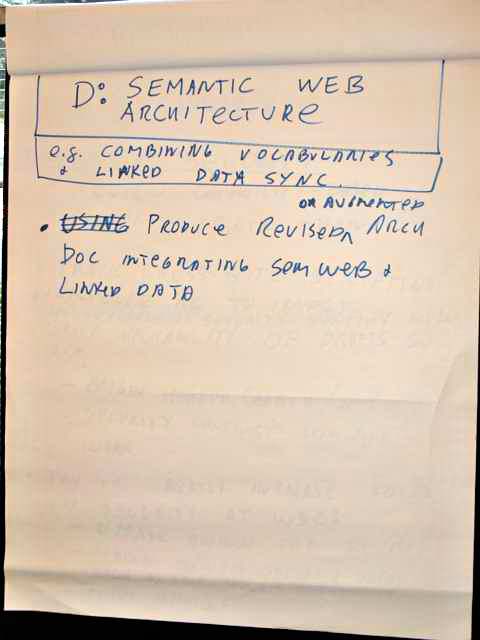 D: SEMANTIC WEB
ARCHITECTURE
e.g. COMBINING VOCABULARIES
& LINKED DATA SYNC.
OR AUGMENTED
• USING PRODUCE REVISED^ ARCH
DOC INTEGRATING SEM WEB &
LINKED DATA